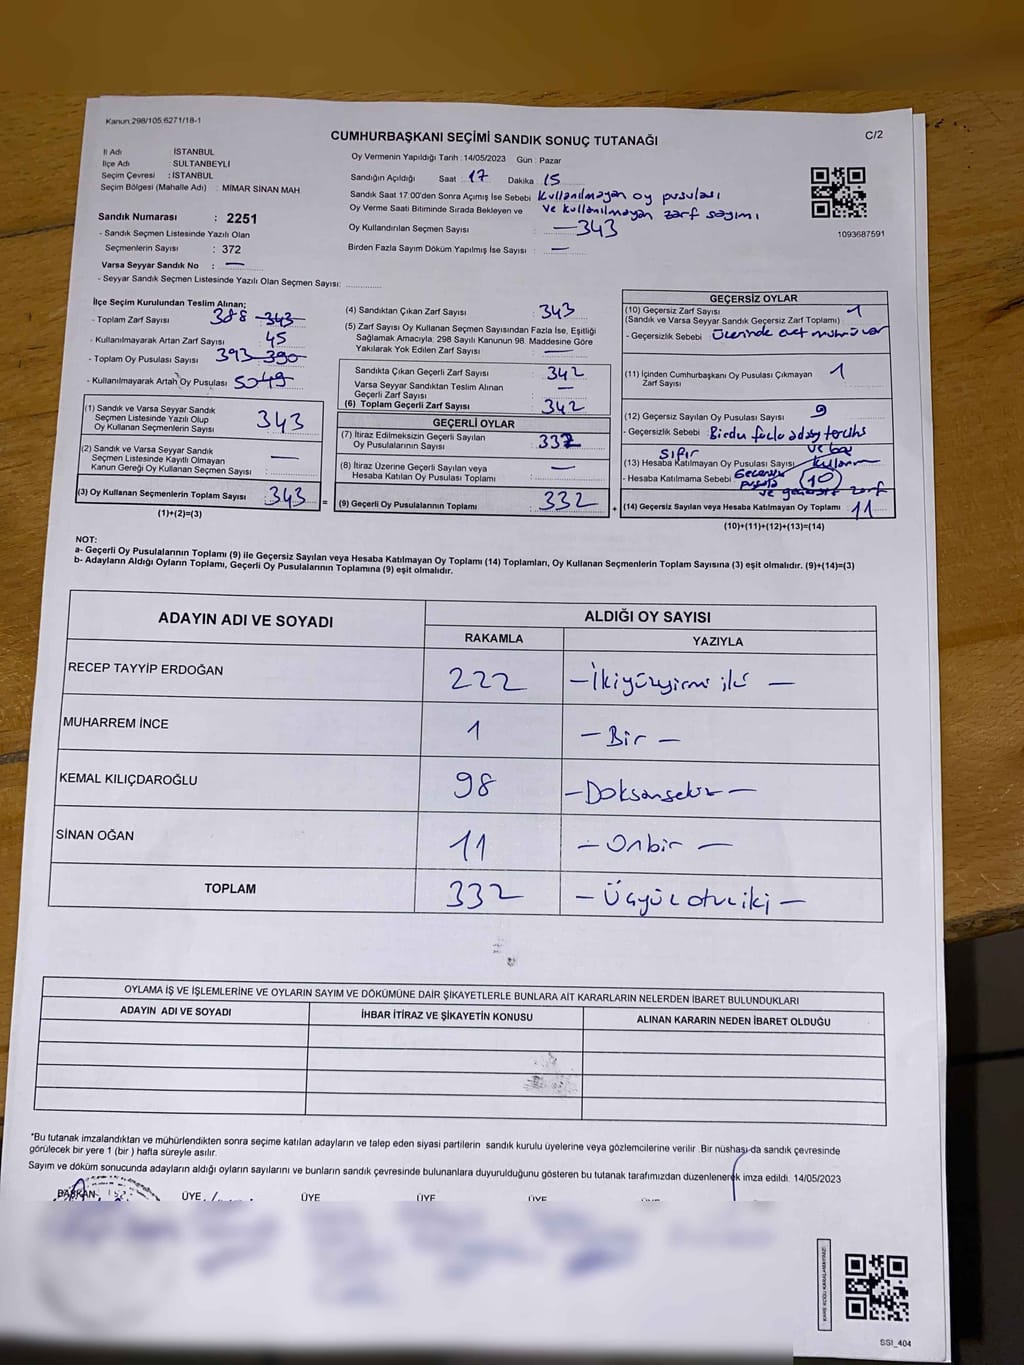 Kanun:298/105.6271/18-1
C/2
CUMHURBAŞKANI SEÇİMİ SANDIK SONUÇ TUTANAĞI
İl Adı : İSTANBUL
İlçe Adı : SULTANBEYLİ
Seçim Çevresi : İSTANBUL
Seçim Bölgesi (Mahalle Adı) : MİMAR SİNAN MAH
Sandık Numarası : 2251
- Sandık Seçmen Listesinde Yazılı Olan
Seçmenlerin Sayısı : 372
Varsa Seyyar Sandık No : —
- Seyyar Sandık Seçmen Listesinde Yazılı Olan Seçmen Sayısı:
Oy Vermenin Yapıldığı Tarih : 14/05/2023 Gün : Pazar
Sandığın Açıldığı Saat 17 Dakika 15
Sandık Saat 17:00'den Sonra Açımış İse Sebebi Kullanılmayan oy pusulası
Oy Verme Saati Bitiminde Sırada Bekleyen ve ve kullanılmayan zarf sayımı
Oy Kullandırılan Seçmen Sayısı —343
Birden Fazla Sayım Döküm Yapılmış İse Sayısı —
1093687591
İlçe Seçim Kurulundan Teslim Alınan;
- Toplam Zarf Sayısı 388 343
- Kullanılmayarak Artan Zarf Sayısı 45
- Toplam Oy Pusulası Sayısı 393 390
- Kullanılmayarak Artan Oy Pusulası
(1) Sandık ve Varsa Seyyar Sandık
Seçmen Listesinde Yazılı Olup
Oy Kullanan Seçmenlerin Sayısı 343
(2) Sandık ve Varsa Seyyar Sandık
Seçmen Listesinde Kayıtlı Olmayan
Kanun Gereği Oy Kullanan Seçmen Sayısı —
(3) Oy Kullanan Seçmenlerin Toplam Sayısı 343 =
(1)+(2)=(3)
(4) Sandıktan Çıkan Zarf Sayısı 343
(5) Zarf Sayısı Oy Kullanan Seçmen Sayısından Fazla İse, Eşitliği
Sağlamak Amacıyla; 298 Sayılı Kanunun 98. Maddesine Göre
Yakılarak Yok Edilen Zarf Sayısı —
Sandıkta Çıkan Geçerli Zarf Sayısı 342
Varsa Seyyar Sandıktan Teslim Alınan
Geçerli Zarf Sayısı —
(6) Toplam Geçerli Zarf Sayısı 342
GEÇERLİ OYLAR
(7) İtiraz Edilmeksizin Geçerli Sayılan
Oy Pusulalarının Sayısı 332
(8) İtiraz Üzerine Geçerli Sayılan veya
Hesaba Katılan Oy Pusulası Toplamı —
(9) Geçerli Oy Pusulalarının Toplamı 332 +
GEÇERSİZ OYLAR
(10) Geçersiz Zarf Sayısı 1
(Sandık ve Varsa Seyyar Sandık Geçersiz Zarf Toplamı)
- Geçersizlik Sebebi Üzerinde evet mührü var
(11) İçinden Cumhurbaşkanı Oy Pusulası Çıkmayan 1
Zarf Sayısı
(12) Geçersiz Sayılan Oy Pusulası Sayısı 9
- Geçersizlik Sebebi Birden fazla aday tercihi
ve boş
(13) Hesaba Katılmayan Oy Pusulası Sayısı sıfır
- Hesaba Katılmama Sebebi Geçersiz 10
pusula
ve geçersiz zarf
(14) Geçersiz Sayılan veya Hesaba Katılmayan Oy Toplamı 11
(10)+(11)+(12)+(13)=(14)
NOT:
a- Geçerli Oy Pusulalarının Toplamı (9) ile Geçersiz Sayılan veya Hesaba Katılmayan Oy Toplamı (14) Toplamları, Oy Kullanan Seçmenlerin Toplam Sayısına (3) eşit olmalıdır. (9)+(14)=(3)
b- Adayların Aldığı Oyların Toplamı, Geçerli Oy Pusulalarının Toplamına (9) eşit olmalıdır.
ADAYIN ADI VE SOYADI
ALDIĞI OY SAYISI
RAKAMLA YAZIYLA
RECEP TAYYİP ERDOĞAN 222 —İkiyüzyirmi iki —
MUHARREM İNCE 1 — Bir —
KEMAL KILIÇDAROĞLU 98 —Doksansekiz —
SİNAN OĞAN 11 — Onbir —
TOPLAM 332 — Üçyüz otuziki —
OYLAMA İŞ VE İŞLEMLERİNE VE OYLARIN SAYIM VE DÖKÜMÜNE DAİR ŞİKAYETLERLE BUNLARA AİT KARARLARIN NELERDEN İBARET BULUNDUKLARI
ADAYIN ADI VE SOYADI İHBAR İTİRAZ VE ŞİKAYETİN KONUSU ALINAN KARARIN NEDEN İBARET OLDUĞU
*Bu tutanak imzalandıktan ve mühürlendikten sonra seçime katılan adayların ve talep eden siyasi partilerin sandık kurulu üyelerine veya gözlemcilerine verilir .Bir nüshası da sandık çevresinde
görülecek bir yere 1 (bir ) hafta süreyle asılır.
Sayım ve döküm sonucunda adayların aldığı oyların sayılarını ve bunların sandık çevresinde bulunanlara duyurulduğunu gösteren bu tutanak tarafımızdan düzenlenerek imza edildi. 14/05/2023
BAŞKAN ÜYE ÜYE ÜYE ÜYE
KARE KODU KARALAMAYINIZ!
SSI_404